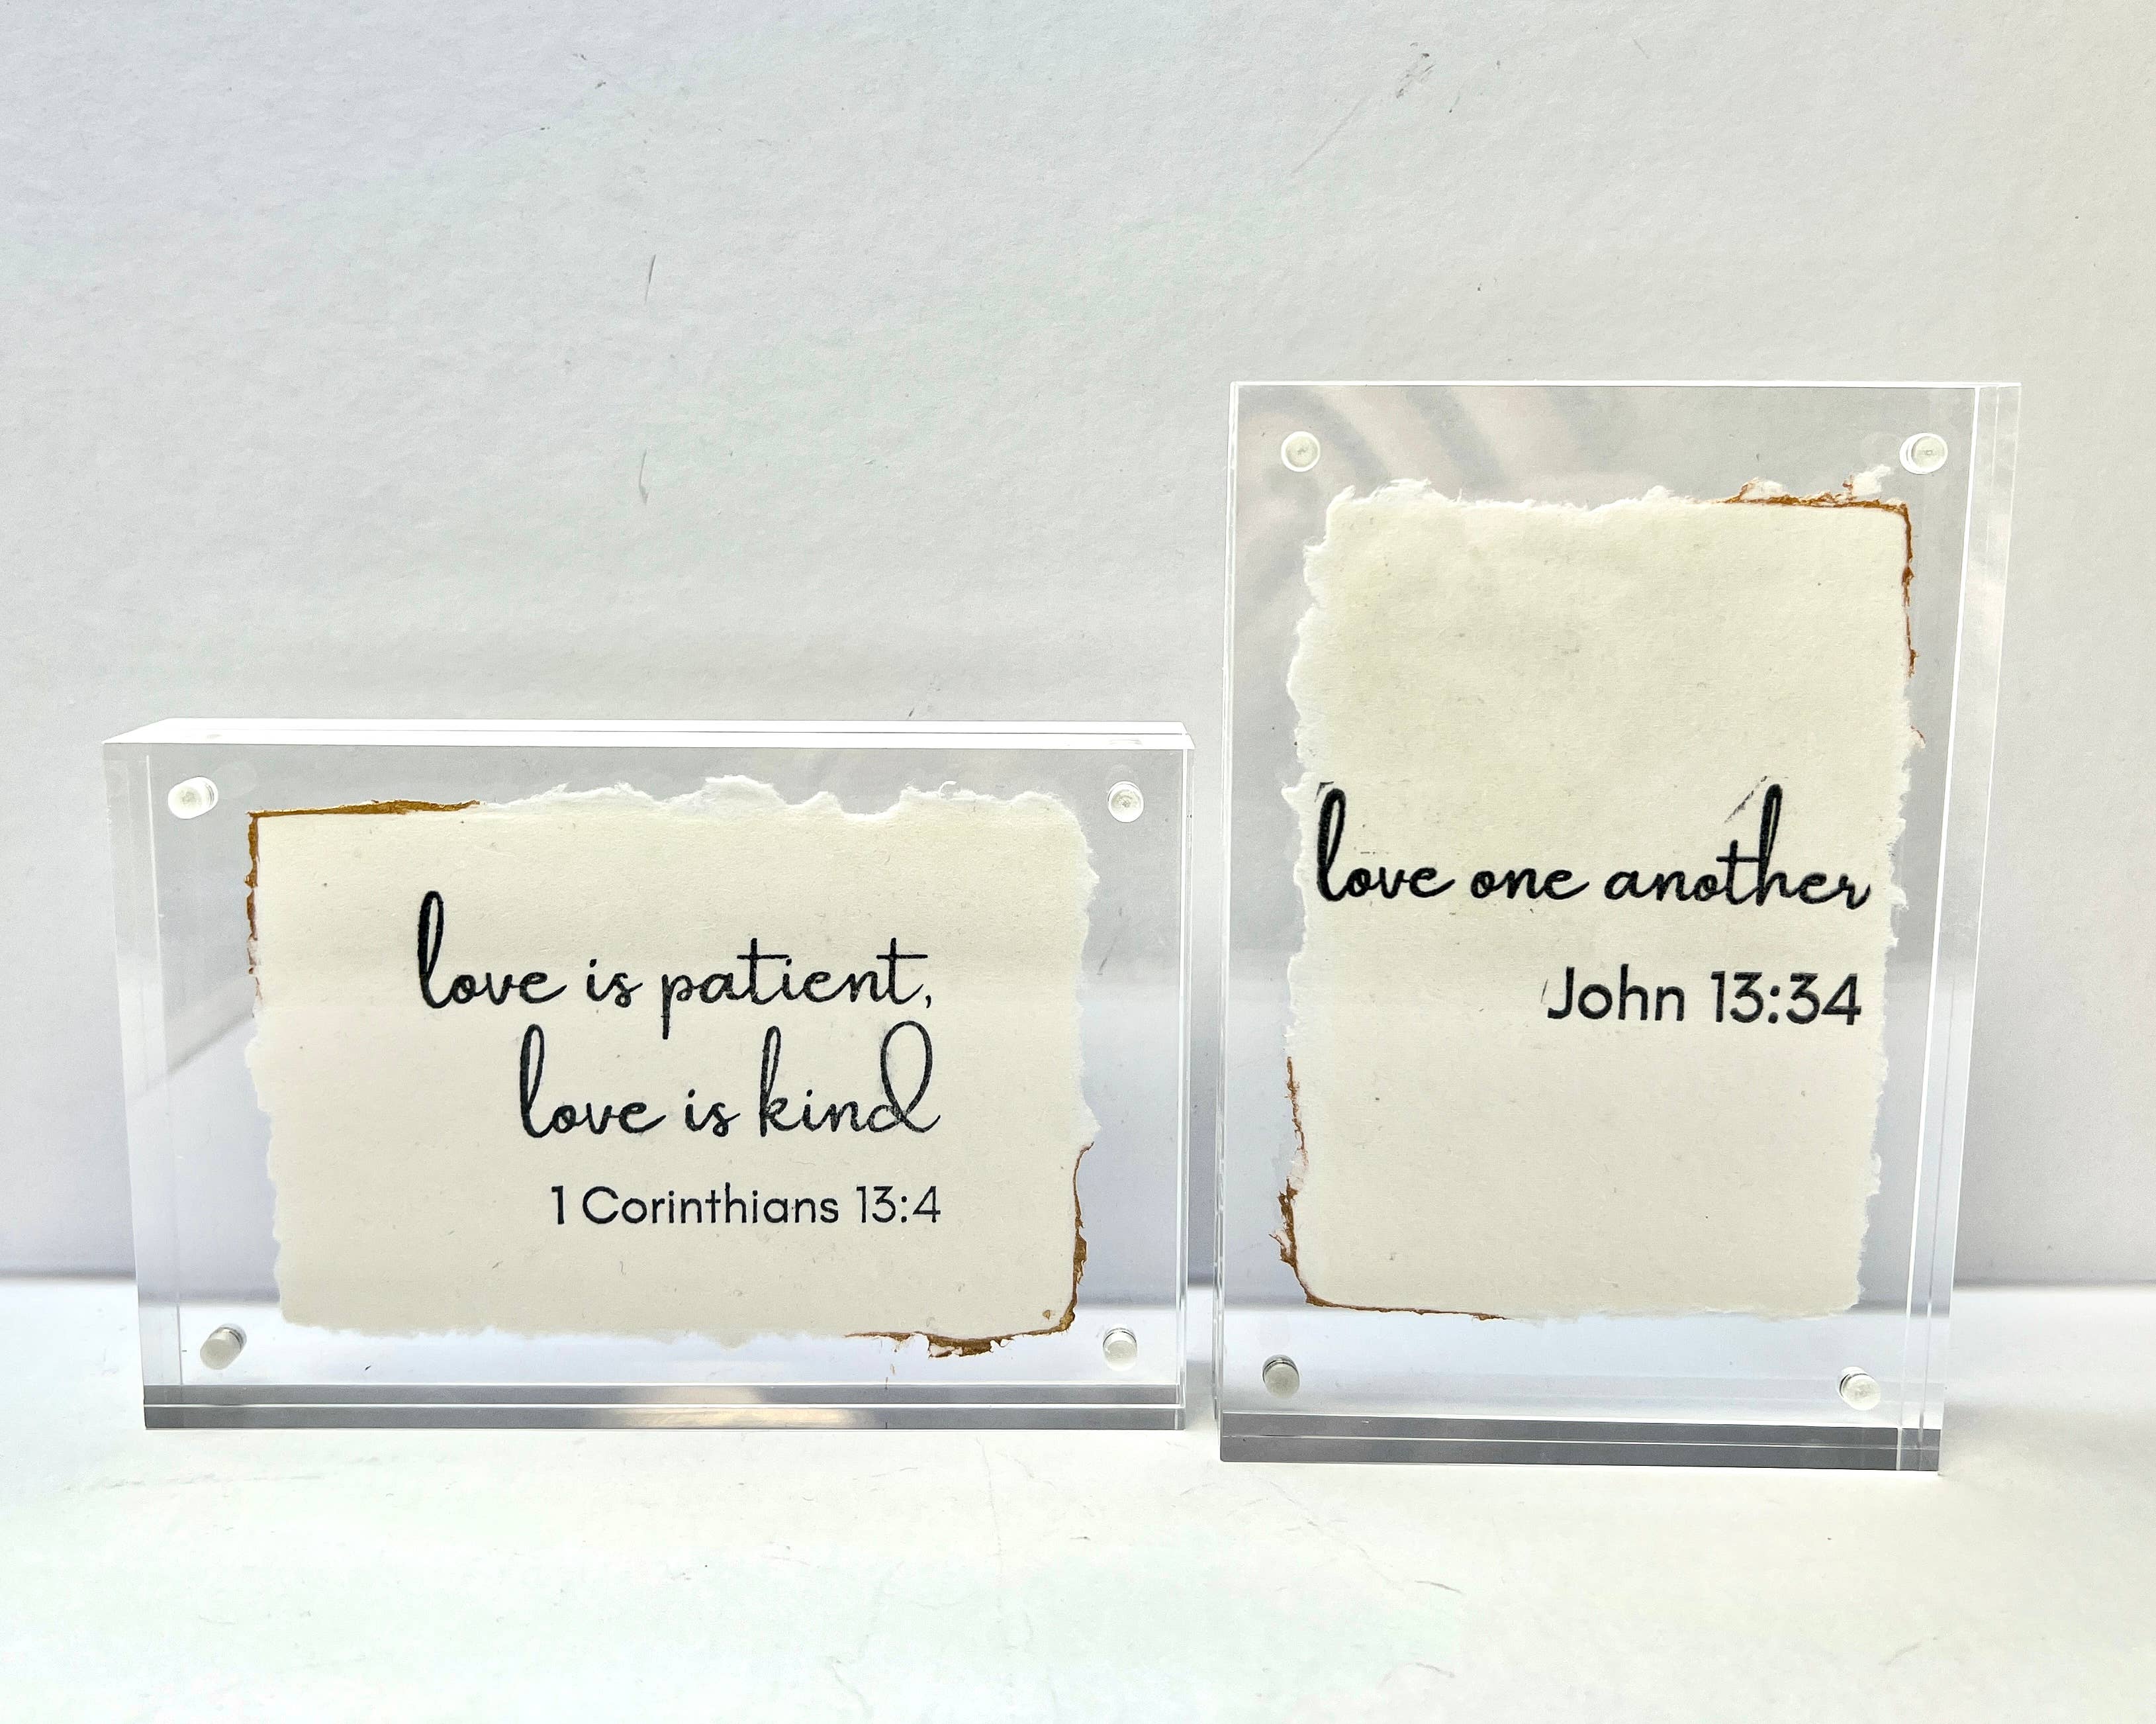 love is patient,
love is kind
1 Corinthians 13:4
love one another
John 13:34